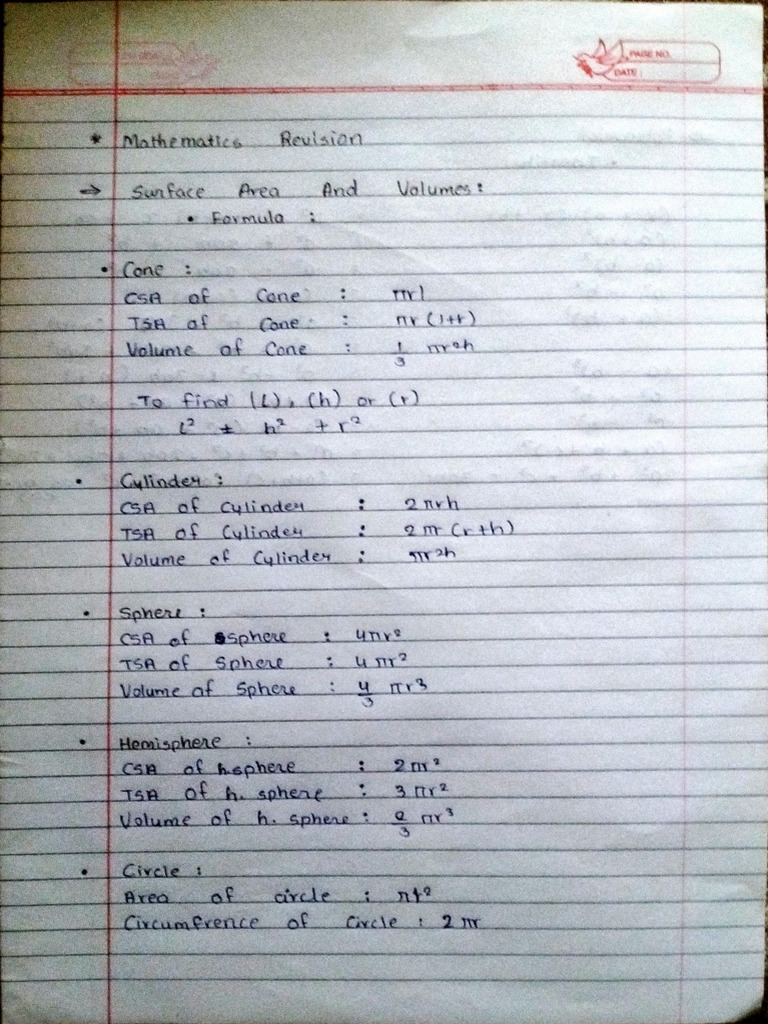 PAGE NO.
DATE :
* Mathematics Revision
→ Surface Area And Volumes :
• Formula :
• Cone :
CSA of Cone : πrl
TSA of Cone : πr (l+r)
Volume of Cone : 1/3 πr²h
To find (L), (h) or (r)
l² ± h² + r²
• Cylinder :
CSA of Cylinder : 2πrh
TSA of Cylinder : 2πr (r+h)
Volume of Cylinder : πr²h
• Sphere :
CSA of sphere : 4πr²
TSA of Sphere : 4πr²
Volume of Sphere : 4/3 πr³
• Hemisphere :
CSA of h.sphere : 2πr²
TSA of h. sphere : 3πr²
Volume of h. sphere : 2/3 πr³
• Circle :
Area of circle : πr²
Circumfrence of Circle : 2πr